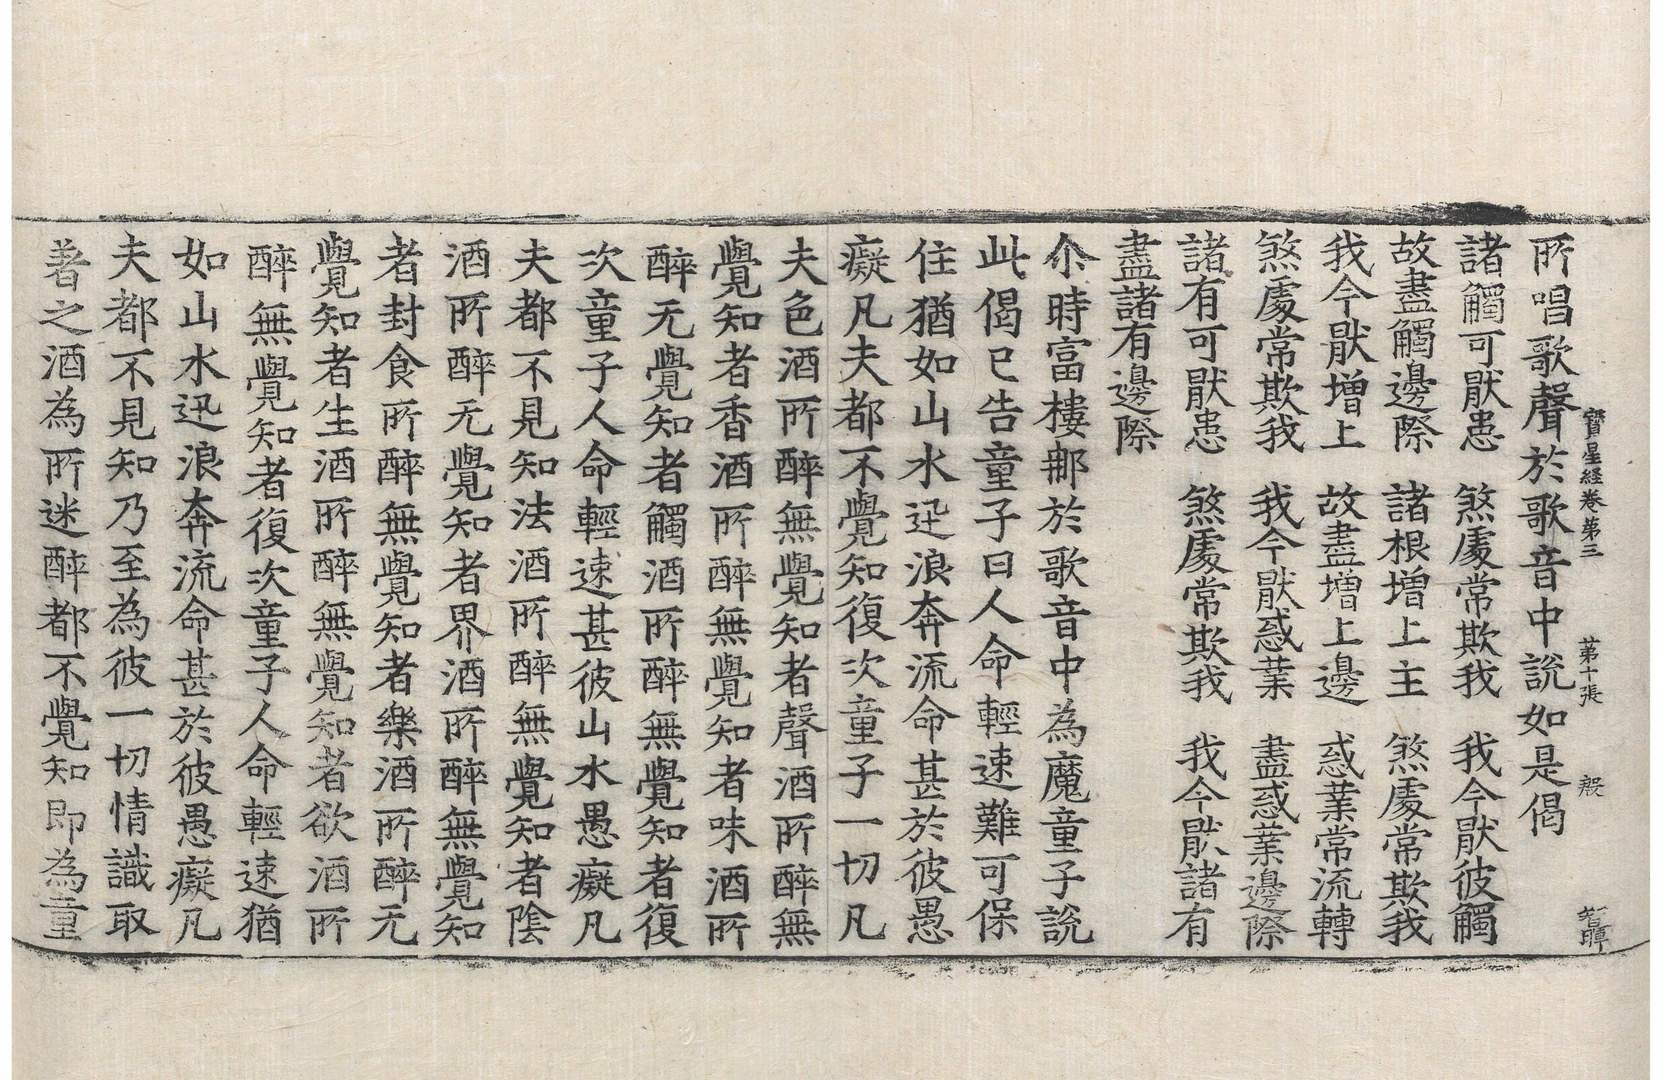 寶星経卷第三 第十張 殷 智暉
所唱歌聲於歌音中說如是偈
諸觸可猒患 煞處常欺我 我今猒彼觸
故盡觸邊際 諸根增上主 煞處常欺我
我今猒增上 故盡增上邊 惑業常流轉
煞處常欺我 我今猒惑業 盡惑業邊際
諸有可猒患 煞處常欺我 我今猒諸有
盡諸有邊際
尒時富樓郍於歌音中為魔童子說
此偈已告童子曰人命輕速難可保
住猶如山水迅浪奔流命甚於彼愚
癡凡夫都不覺知復次童子一切凡
夫色酒所醉無覺知者聲酒所醉無
覺知者香酒所醉無覺知者味酒所
醉无覺知者觸酒所醉無覺知者復
次童子人命輕速甚彼山水愚癡凡
夫都不見知法酒所醉無覺知者陰
酒所醉无覺知者界酒所醉無覺知
者封食所醉無覺知者樂酒所醉无
覺知者生酒所醉無覺知者欲酒所
醉無覺知者復次童子人命輕速猶
如山水迅浪奔流命甚於彼愚癡凡
夫都不見知乃至為彼一切情識取
著之酒為所迷醉都不覺知即為童